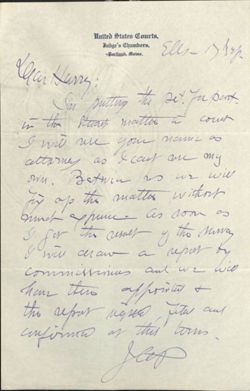 United States Courts,
Judge's Chambers,
Portland, Maine.
Dear Harry:
In putting the
in the matter in court
I will use your name as
attorney as I cant use my
own. Between us we will
fix up the matter without
as soon as
I get the result of the
I will draw a report by
commissioners and we will
have them appointed &
the report signed, filed and
confirmed at this term.